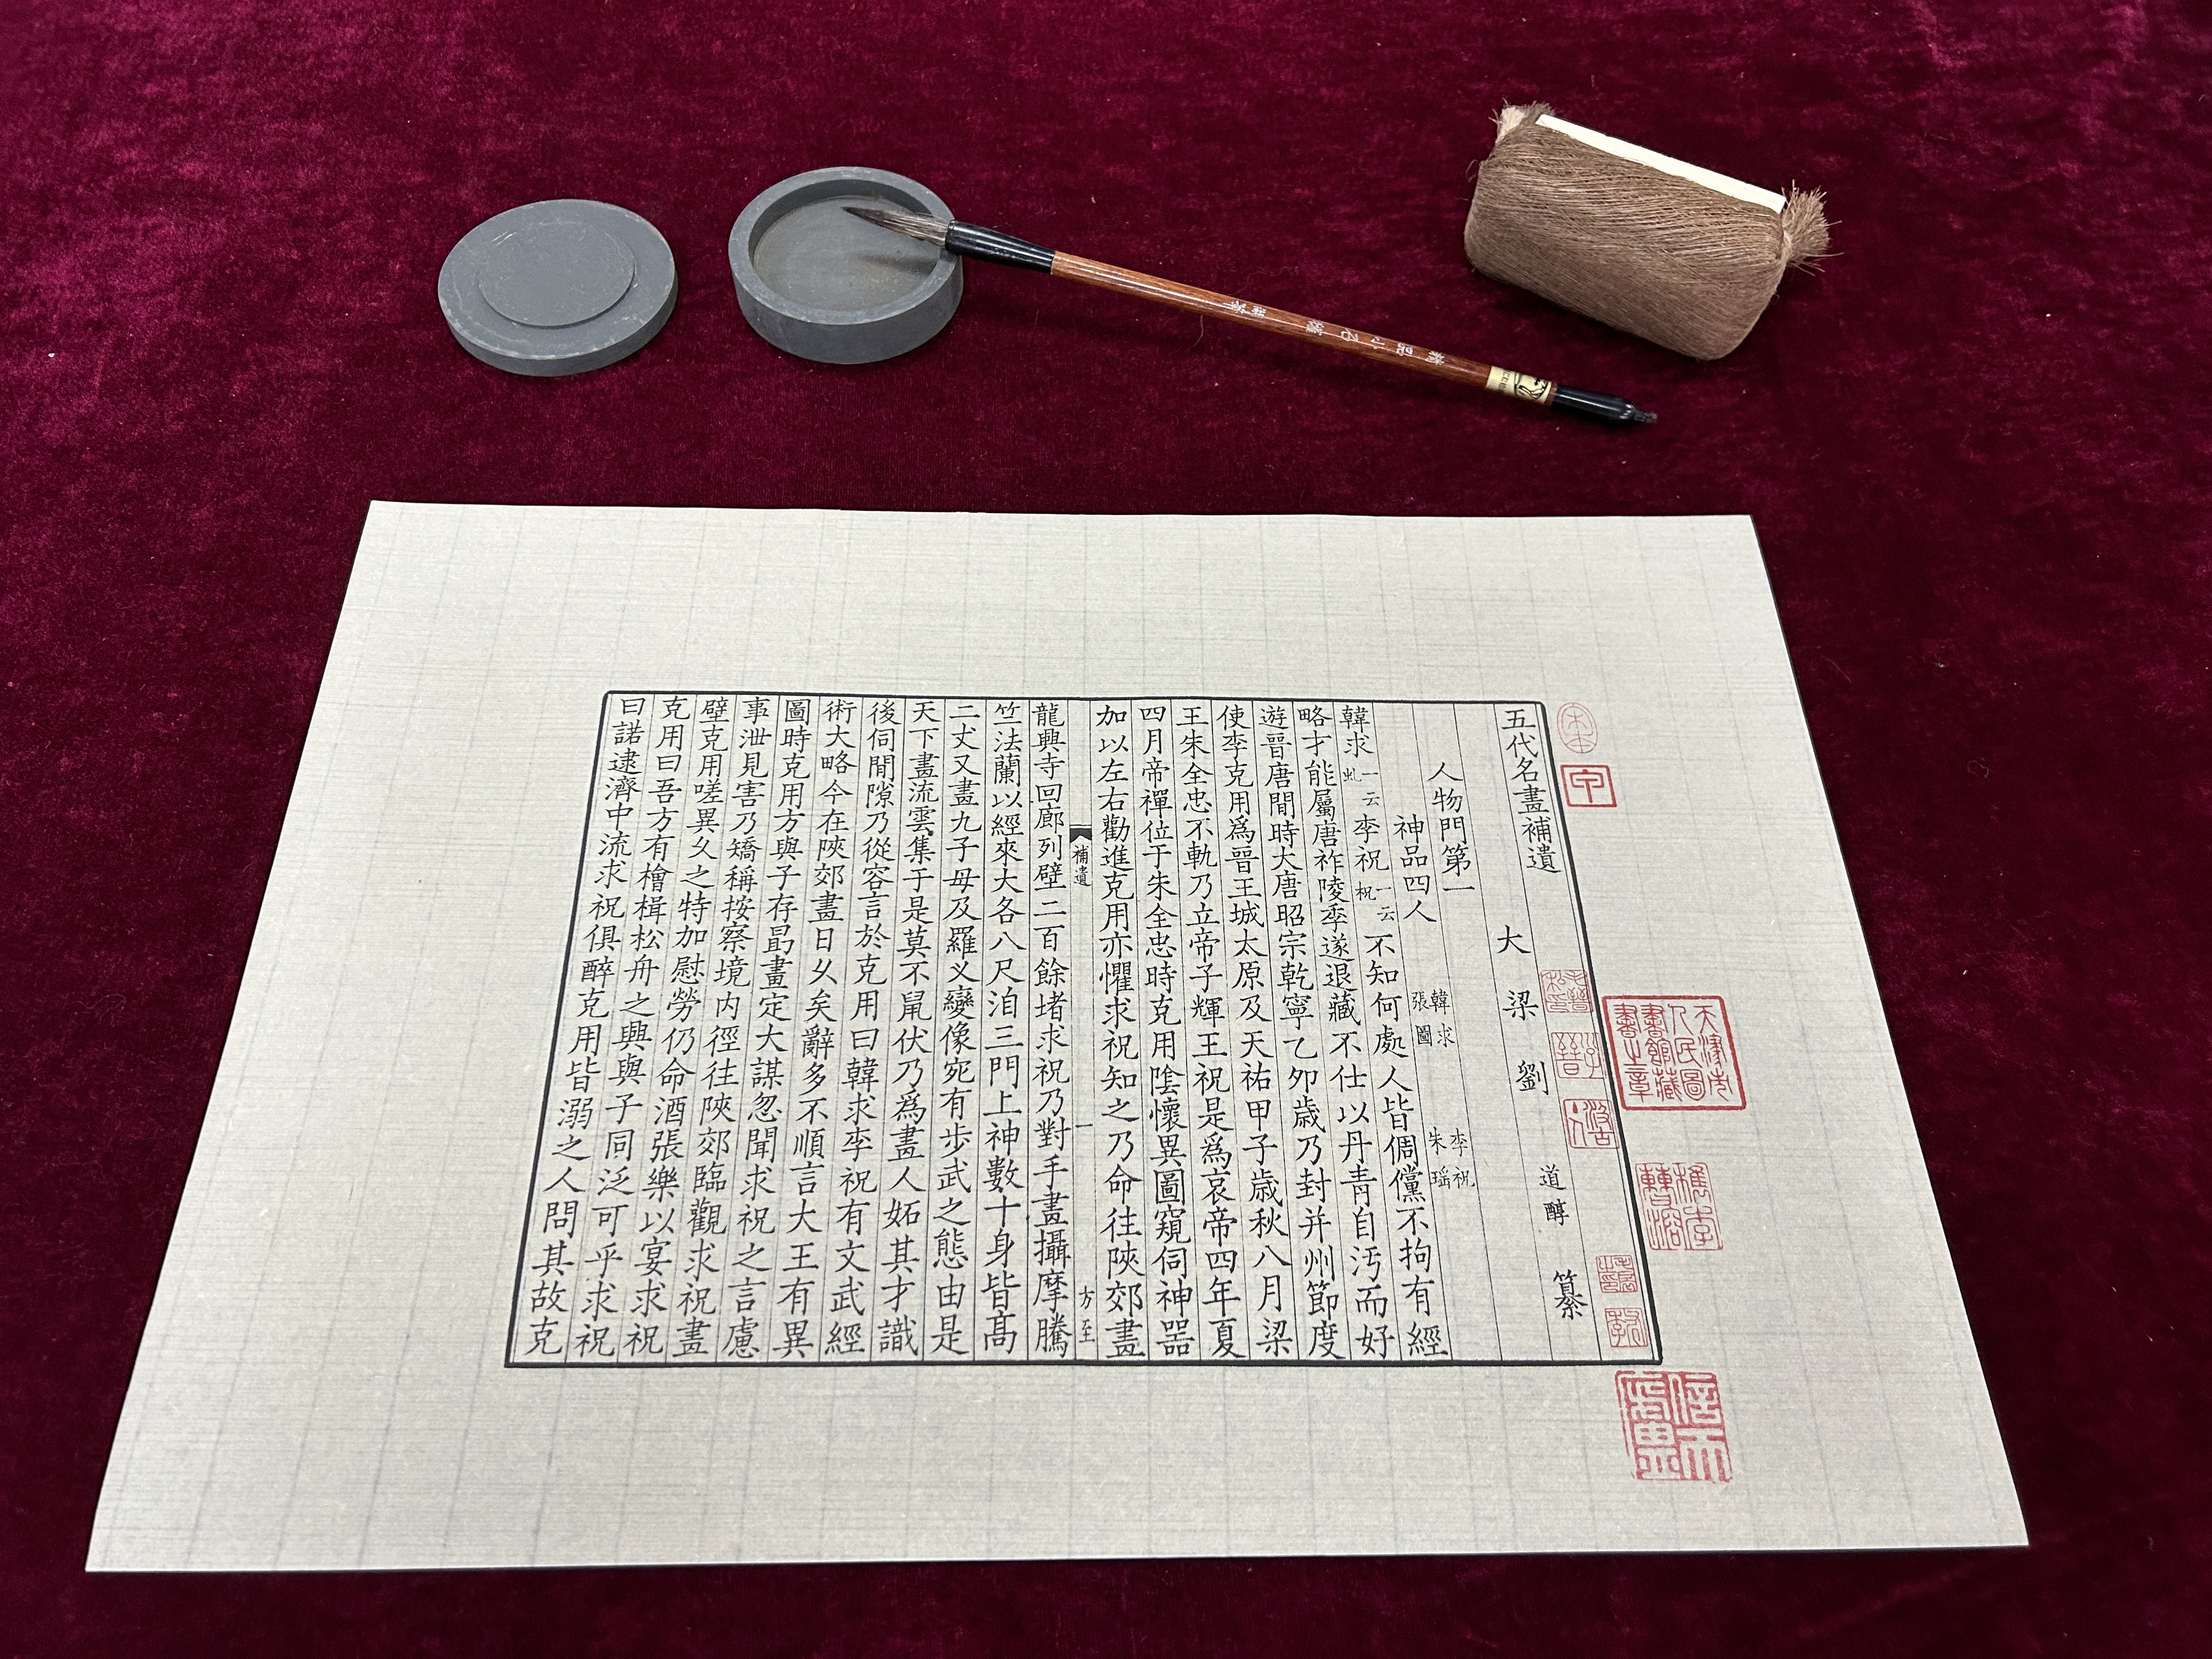 五代名畫補遺
大梁劉道醇纂
人物門第一
神品四人 韓求 李祝 張圖 朱瑶
韓求一云虬李祝一云柷不知何處人皆倜儻不拘有經
略才能屬唐祚陵季遂退藏不仕以丹青自汚而好
遊晉唐間時大唐昭宗乾寧乙夘歲乃封并州節度
使李克用爲晉王城太原及天祐甲子歲秋八月梁
王朱全忠不軌乃立帝子輝王祝是爲哀帝四年夏
四月帝禪位于朱全忠時克用隂懷異圖窺伺神器
加以左右勸進克用亦懼求祝知之乃命往陝郊畫
補遺 一 方至
龍興寺回廊列壁二百餘堵求祝乃對手畫攝摩騰
竺法蘭以經來大各八尺洎三門上神數十身皆髙
二丈又畫九子母及羅义變像宛有步武之態由是
天下畫流雲集于是莫不鼠伏乃爲畫人妬其才識
後伺間隙乃從容言於克用曰韓求李祝有文武經
術大略今在陝郊畫日乆矣辭多不順言大王有異
圖時克用方與子存勗畫定大謀忽聞求祝之言慮
事泄見害乃矯稱按察境内徑往陝郊臨觀求祝畫
壁克用嗟異乆之特加慰勞仍命酒張樂以宴求祝
克用曰吾方有檜楫松舟之興與子同泛可乎求祝
曰諾逮濟中流求祝俱醉克用皆溺之人問其故克
天津市人民圖書館藏書之章